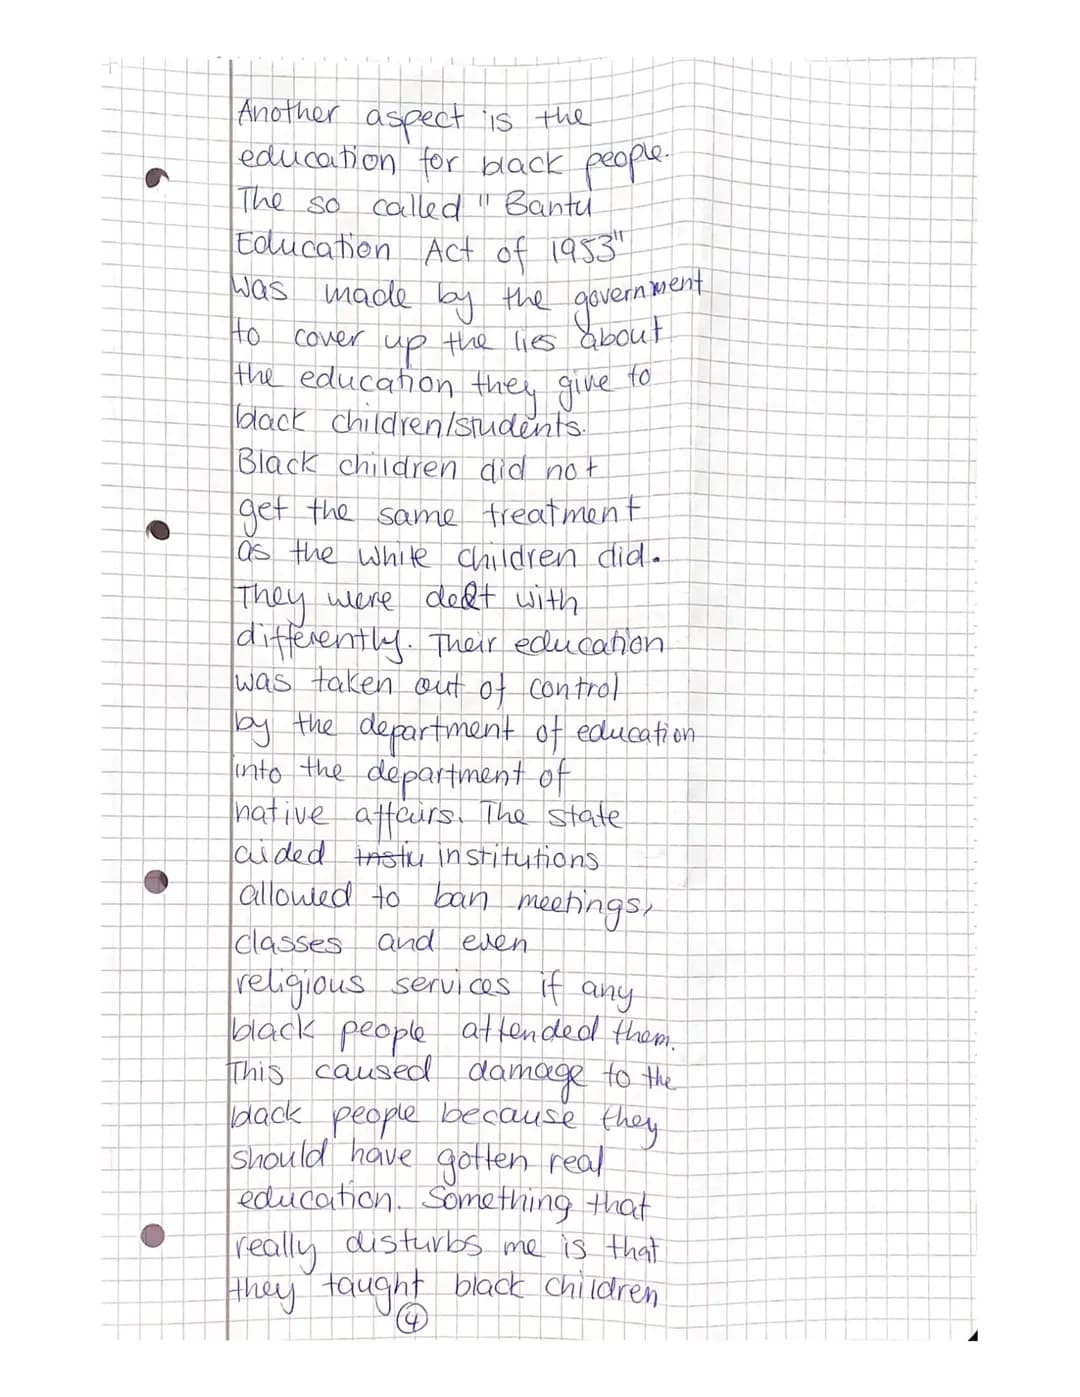 Another aspect is the
education for black people.
The so called "Bantu
Education Act of 1953"
was made by the government
to cover up the lies about
the education they give to
black children/students.
Black children did not
get the same treatment
as the white children did.
They were delt with
differently. Their education
was taken out of control
by the department of education
into the department of
native affairs. The state
aided instiu institutions
allowed to ban meetings,
classes and even
religious services if any
black people attended them.
This caused damage to the
black people because they
should have gotten real
education. Something that
really disturbs me is that
they taught black children
4